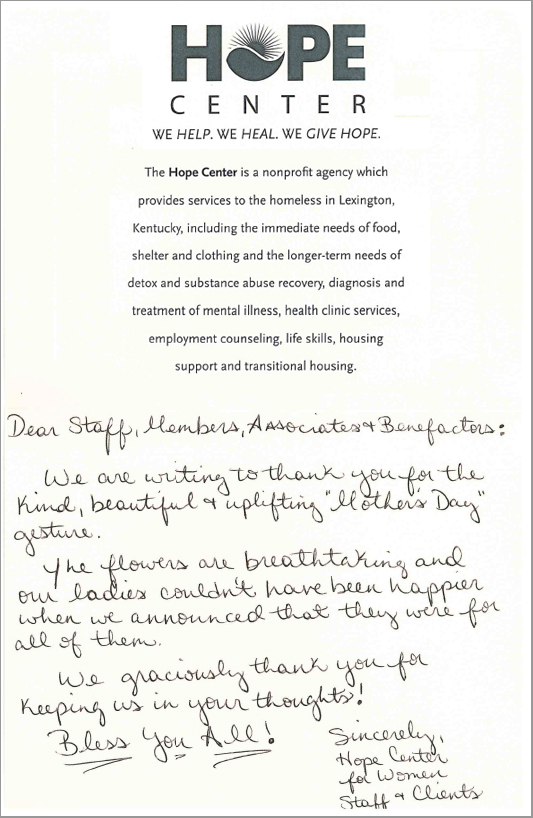 HOPE
CENTER
WE HELP. WE HEAL. WE GIVE HOPE.
The Hope Center is a nonprofit agency which
provides services to the homeless in Lexington,
Kentucky, including the immediate needs of food,
shelter and clothing and the longer-term needs of
detox and substance abuse recovery, diagnosis and
treatment of mental illness, health clinic services,
employment counseling, life skills, housing
support and transitional housing.
Dear Staff, Members, Associates & Benefactors:
We are writing to thank you for the
kind, beautiful & uplifting "Mother's Day"
gesture.
The flowers are breathtaking and
our ladies couldn't have been happier
when we announced that they were for
all of them.
We graciously thank you for
keeping us in your thoughts!
Bless You All!
Sincerely,
Hope Center
for Women
Staff & Clients